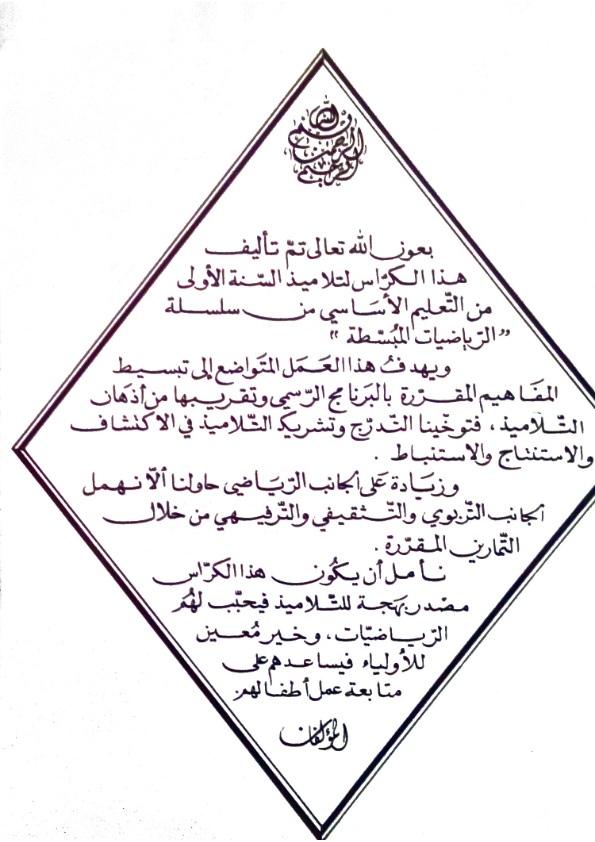 بسم الله الرحمن الرحيم
بعون الله تعالى تمّ تأليف
هذا الكرّاس لتلاميذ السّنة الأولى
من التّعليم الأسَاسي من سلسلة
"الرّياضيات المُبسّطة"
ويهدفُ هذا العَمَل المتَواضع إلى تبسيط
المفَاهيم المقرّرة بالبَرنامج الرّسمي وتقريبها من أذهَان
التّلاميذ، فتوخّينا التّدرّج وتشريك التّلاميذ في الاكتشاف
والاستنتاج والاستنباط .
وزيَادة عَلى الجانب الرّيَاضي حاولنا ألاّ نهمل
الجانب التّربوي والتّثقيفي والتّرفيهي من خلال
التّمارين المقرّرة .
نأمل أن يكُون هذا الكرّاس
مصدر بهَجة للتّلاميذ فيحبّب لهُم
الرّياضيّات، وخير مُعين
للأولياء فيساعدهم على
متابعة عمل أطفالهم.
المؤلفان